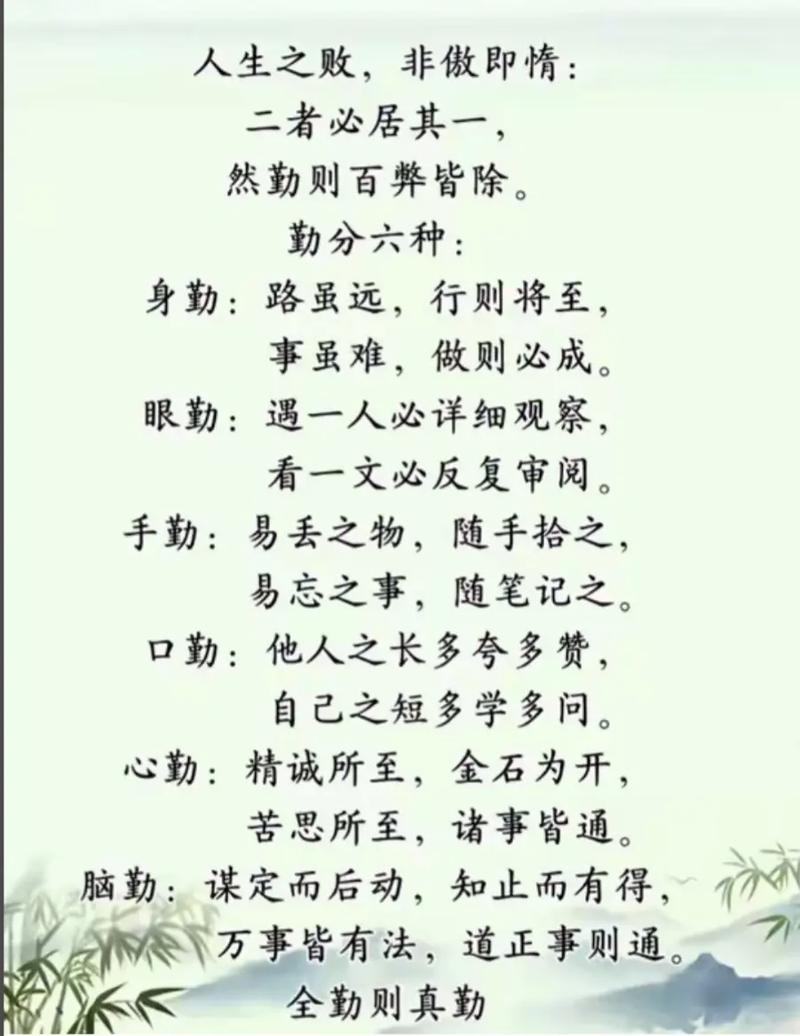 人生之败，非傲即惰：
二者必居其一，
然勤则百弊皆除。
勤分六种：
身勤：路虽远，行则将至，
事虽难，做则必成。
眼勤：遇一人必详细观察，
看一文必反复审阅。
手勤：易丢之物，随手拾之，
易忘之事，随笔记之。
口勤：他人之长多夸多赞，
自己之短多学多问。
心勤：精诚所至，金石为开，
苦思所至，诸事皆通。
脑勤：谋定而后动，知止而有得，
万事皆有法，道正事则通。
全勤则真勤